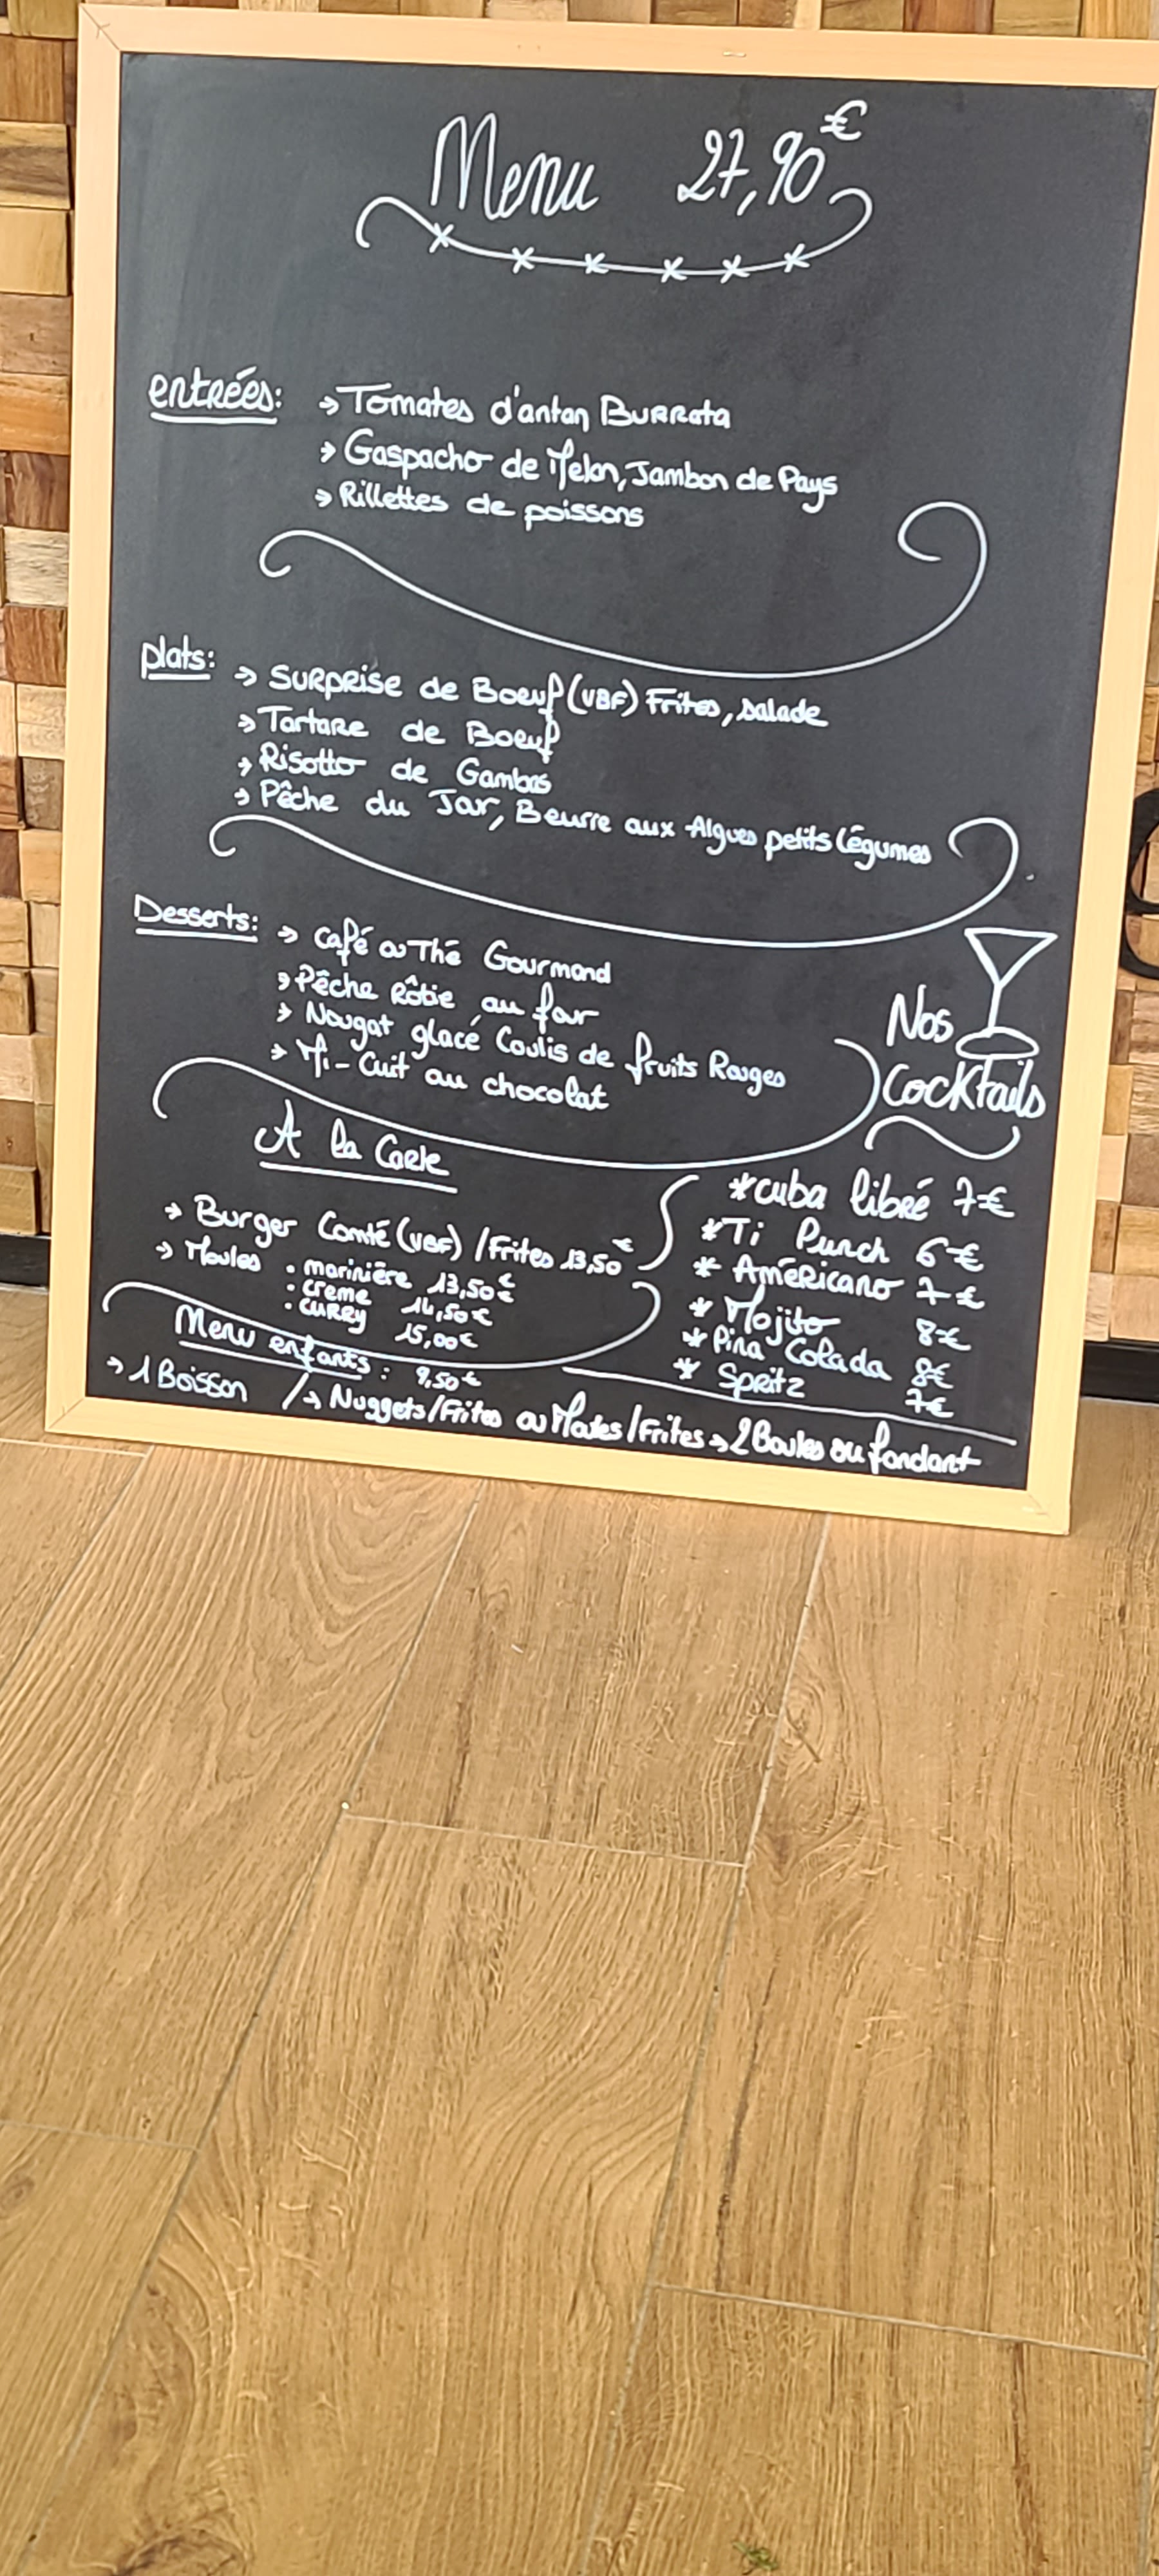 Menu 27,90€
entrées: → Tomates d'antan Burrata
→ Gaspacho de Melon, Jambon de Pays
→ Rillettes de poissons
plats: → Surprise de Boeuf (VBF) Frites, salade
→ Tartare de Boeuf
→ Risotto de Gambas
→ Pêche du Jour, Beurre aux Algues petits légumes
Desserts: → Café ou Thé Gourmand
→ Pêche Rôtie au four
→ Nougat glacé Coulis de fruits Rouges
→ Mi-Cuit au chocolat
A la Carte
→ Burger Comté (VBF) / Frites 13,50€
→ Moules . marinière 13,50€
. creme 14,50€
. curry 15,00€
Nos
Cocktails
*cuba libré 7€
*Ti Punch 6€
* Américano 7€
* Mojito 8€
* Pina Colada 8€
* Spritz 7€
Menu enfants : 9,50€
→ 1 Boisson / → Nuggets/Frites ou Moules/Frites → 2 Boules ou fondant